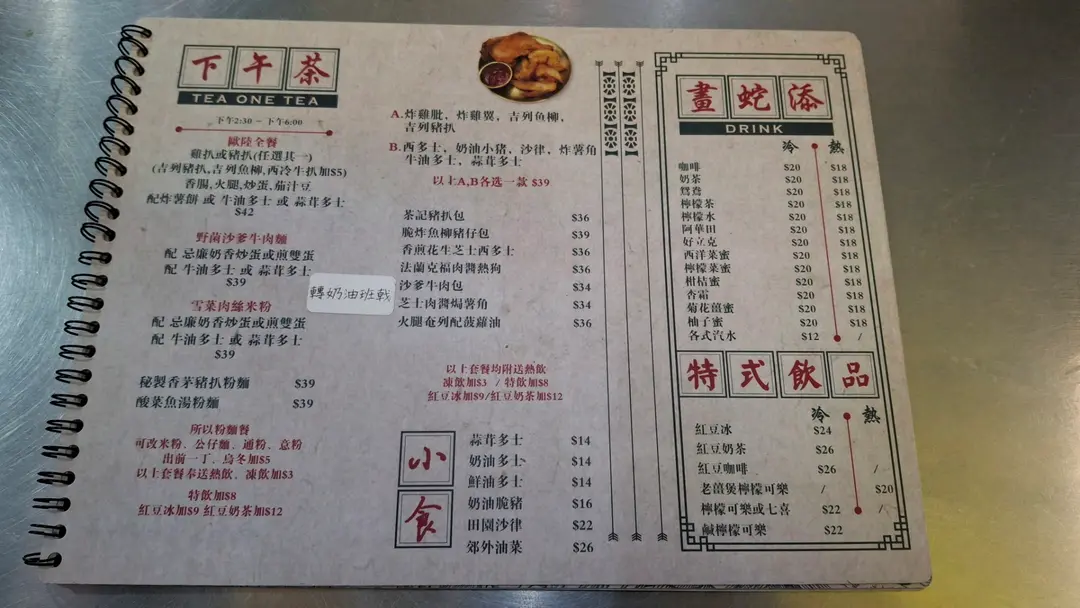 下午茶
TEA ONE TEA
下午2:30 – 下午6:00
歐陸全餐
雞扒或豬扒(任選其一)
(吉列豬扒,吉列魚柳,西冷牛扒加$5)
香腸,火腿,炒蛋,茄汁豆
配炸薯餅 或 牛油多士 或 蒜茸多士
$42
野菌沙爹牛肉麵
配 忌廉奶香炒蛋或煎雙蛋
配 牛油多士 或 蒜茸多士
$39
雪菜肉絲米粉
配 忌廉奶香炒蛋或煎雙蛋
配 牛油多士 或 蒜茸多士
$39
秘製香茅豬扒粉麵 $39
酸菜魚湯粉麵 $39
所以粉麵餐
可改米粉、公仔麵、通粉、意粉
出前一丁、烏冬加$5
以上套餐奉送熱飲、凍飲加$3
特飲加$8
紅豆冰加$9 紅豆奶茶加$12
A.炸雞髀，炸雞翼，吉列魚柳，
吉列豬扒
B.西多士，奶油小豬，沙律，炸薯角
牛油多士，蒜茸多士
以上A,B各选一款 $39
茶記豬扒包 $36
脆炸魚柳豬仔包 $39
香煎花生芝士西多士 $36
法蘭克福肉醬熱狗 $36
轉奶油班戟
沙爹牛肉包 $34
芝士肉醬焗薯角 $34
火腿奄列配菠蘿油 $36
以上套餐均附送熱飲
凍飲加$3 / 特飲加$8
紅豆冰加$9/紅豆奶茶加$12
小食
蒜茸多士 $14
奶油多士 $14
鮮油多士 $14
奶油脆豬 $16
田園沙律 $22
郊外油菜 $26
畫蛇添
DRINK
冷 熱
咖啡 $20 $18
奶茶 $20 $18
鴛鴦 $20 $18
檸檬茶 $20 $18
檸檬水 $20 $18
阿華田 $20 $18
好立克 $20 $18
西洋菜蜜 $20 $18
檸檬菜蜜 $20 $18
柑桔蜜 $20 $18
杏霜 $20 $18
菊花蜜 $20 $18
柚子蜜 $20 $18
各式汽水 $12 /
特式飲品
冷 熱
紅豆冰 $24
紅豆奶茶 $26
紅豆咖啡 $26 /
老薑煲檸檬可樂 / $20
檸檬可樂或七喜 $22 /
鹹檸檬可樂 $22